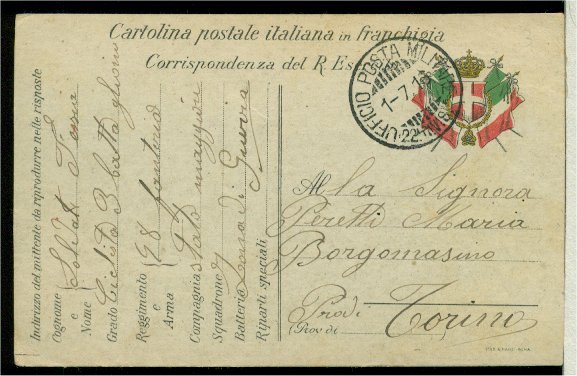 Cartolina postale italiana in franchigia
Corrispondenza del R. Es
UFFICIO POSTA MILIT
1-7.1
22
Alla Signora
Peretti Maria
Borgomasino
Prov di
(Prov. di
Torino
Indirizzo del mittente da riprodurre nelle risposte
Cognome
e
Nome
Soldato
Grado Ciclista 3 Battaglione
Reggimento
e
Arma
68 fanteria
Compagnia Stato maggiore
Squadrone
Batteria Zona di Guerra
Riparti speciali